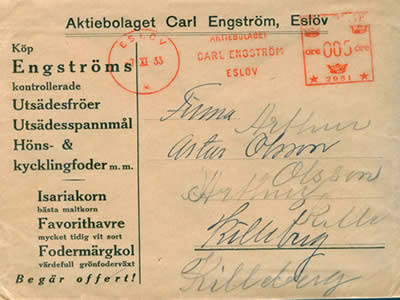 Aktiebolaget Carl Engström, Eslöv
Köp
Engströms
kontrollerade
Utsädesfröer
Utsädesspannmål
Höns- &
kycklingfoder m. m.
Isariakorn
bästa maltkorn
Favorithavre
mycket tidig vit sort
Fodermärgkol
värdefull grönfoderväxt
Begär offert!
ESLÖV
7 XI 33
AKTIEBOLAGET
CARL ENGSTRÖM
ESLÖV
öre 005 öre
2951
Firma
Arthur
Artur Olsson
Olsson
Arthur
Killeberg
Killeberg